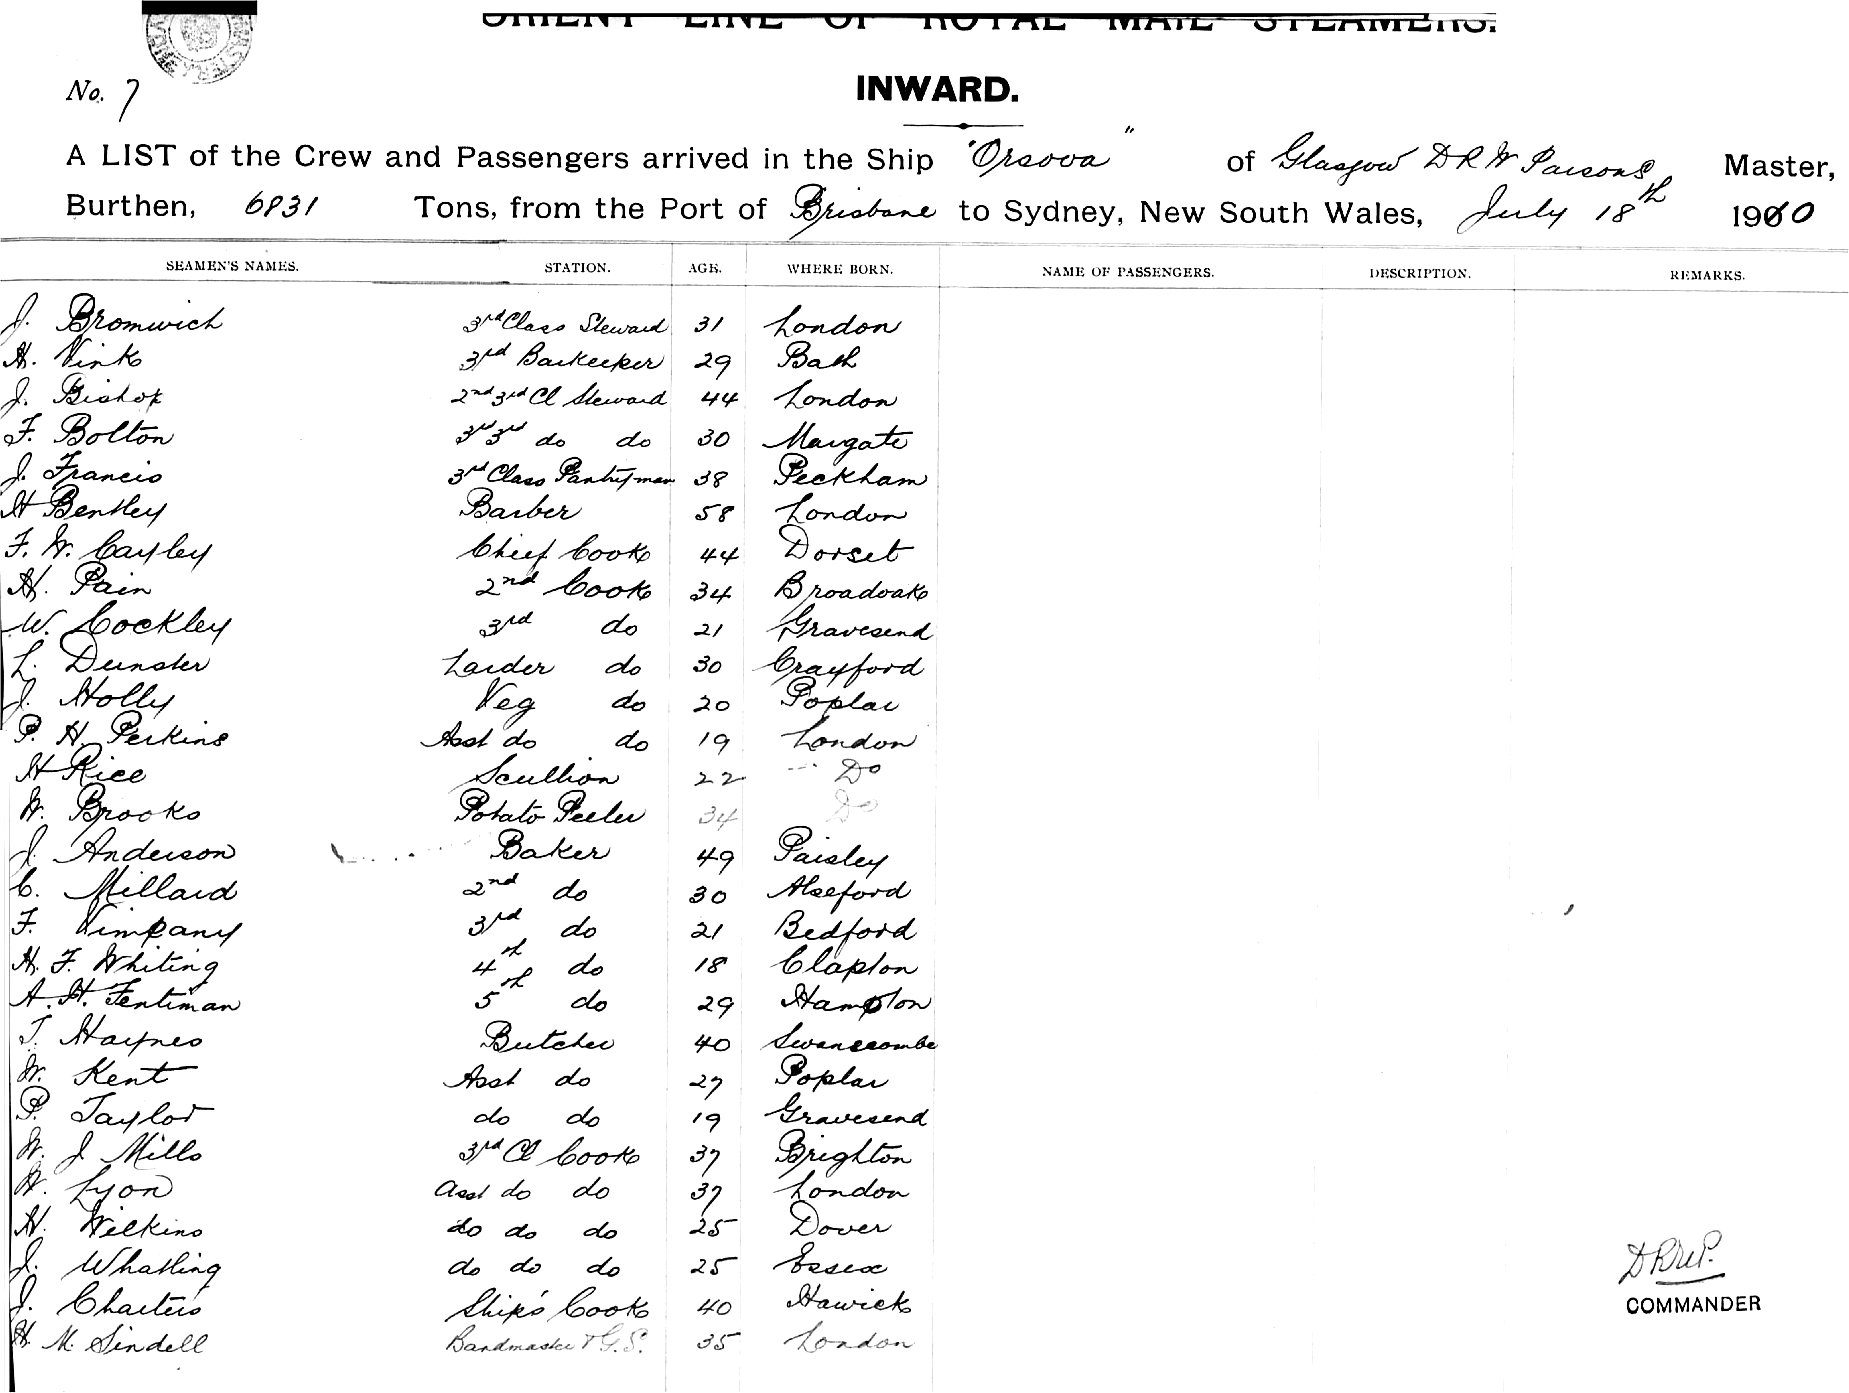 ORIENT LINE OF ROYAL MAIL STEAMERS.
No. 7
INWARD.
A LIST of the Crew and Passengers arrived in the Ship "Orsova" of Glasgow D R W Parsons Master,
Burthen, 6831 Tons, from the Port of Brisbane to Sydney, New South Wales, July 18th 1910
SEAMEN'S NAMES. STATION. AGE. WHERE BORN. NAME OF PASSENGERS. DESCRIPTION. REMARKS.
J. Bromwich 3rd Class Steward 31 London
H. Vink 3rd Barkeeper 29 Bath
J. Bishop 2nd 3rd Cl Steward 44 London
F. Bolton 3rd 3rd do do 30 Margate
J. Francis 3rd Class Pantryman 38 Peckham
H Bentley Barber 58 London
F. W. Cayley Chief Cook 44 Dorset
H. Pain 2nd Cook 34 Broadoak
W. Cockley 3rd do 21 Gravesend
L. Dunster Larder do 30 Crayford
J. Holly Veg do 20 Poplar
P. H. Perkins Asst do do 19 London
H Rice Scullion 22 Do
W. Brooks Potato Peeler 34 Do
J. Anderson Baker 49 Paisley
C. Millard 2nd do 30 Alseford
F. Vimpany 3rd do 21 Bedford
H. F. Whiting 4th do 18 Clapton
A. H. Fentiman 5th do 29 Hampton
T. Haynes Butcher 40 Swanscombe
W. Kent Asst do 27 Poplar
P. Taylor do do 19 Gravesend
W. J Mills 3rd Cl Cook 37 Brighton
W. Lyon Asst do do 37 London
H. Wilkins do do do 25 Dover
J. Whatling do do do 25 Essex
J. Charters Ship's Cook 40 Hawick
H. M. Sindell Bandmaster & G.S. 35 London
D R W P.
COMMANDER